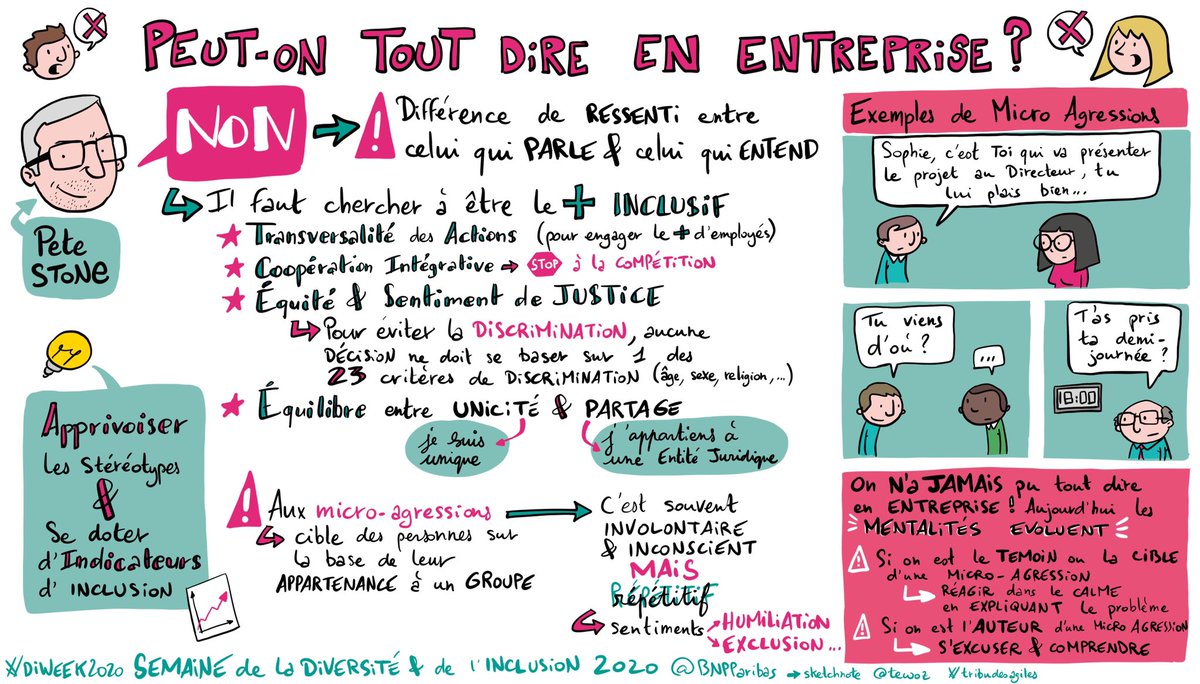 PEUT-ON TOUT DIRE EN ENTREPRISE ?
Pete
STONE
NON
! Différence de RESSENTI entre
celui qui PARLE & celui qui ENTEND
Il faut chercher à être le + INCLUSIF
Transversalité des Actions (pour engager le + d'employés)
Coopération Intégrative → STOP à la COMPÉTITION
Équité & Sentiment de JUSTICE
Pour éviter la DISCRIMINATION, aucune
DÉCISION ne doit se baser sur 1 des
23 critères de DISCRIMINATION (âge, sexe, religion, ...)
Équilibre entre UNICITÉ & PARTAGE
je suis
unique
j'appartiens à
une Entité Juridique
Apprivoiser
les stéréotypes
&
Se doter
d'Indicateurs
d'INCLUSION
! Aux micro-agressions
cible des personnes sur
la base de leur
APPARTENANCE à un GROUPE
C'est souvent
INVOLONTAIRE
& INCONSCIENT
MAIS
répétitif
sentiments
HUMILIATION
EXCLUSION...
Exemples de Micro Agressions
Sophie, c'est Toi qui va présenter
le projet au Directeur, tu
lui plais bien...
Tu viens
d'où ?
...
T'as pris
ta demi-
journée ?
18:00
On N'a JAMAIS pu tout dire
en ENTREPRISE ! Aujourd'hui les
MENTALITÉS EVOLUENT
! Si on est le TEMOIN ou la CIBLE
d'une MICRO-AGRESSION
RÉAGIR dans le CALME
en EXPLIQUANT le problème
! Si on est l'AUTEUR d'une MICRO AGRESSION
S'EXCUSER & COMPRENDRE
#DiWEEK2020 SEMAINE de la DIVERSITÉ & de l'INCLUSION 2020 @BNPParibas → sketchnote @tewoz #tribudesagiles